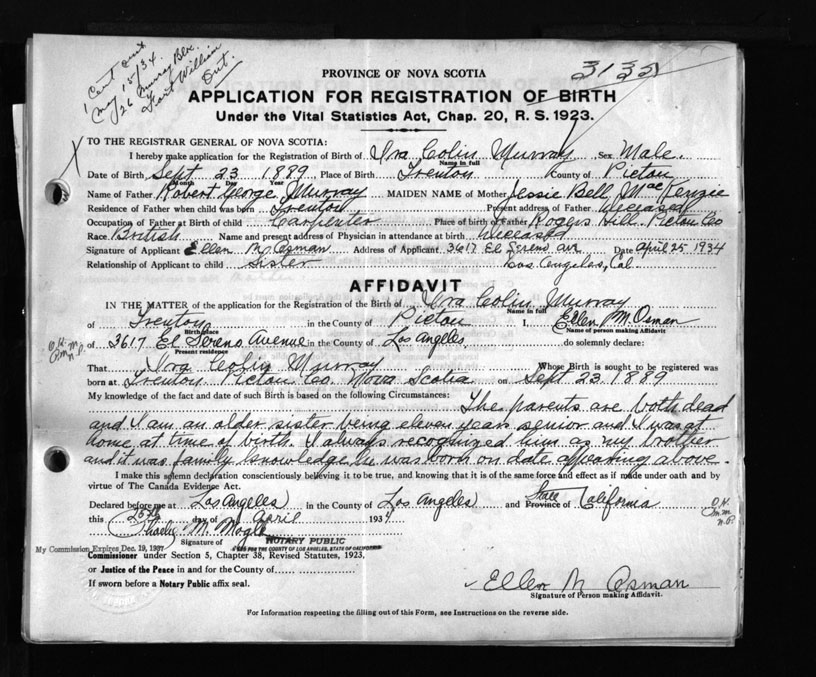 1 Cert out
May 15/34
26 Murray Blv.
Fort William
Ont.
3135
PROVINCE OF NOVA SCOTIA
APPLICATION FOR REGISTRATION OF BIRTH
Under the Vital Statistics Act, Chap. 20, R. S. 1923.
TO THE REGISTRAR GENERAL OF NOVA SCOTIA:
I hereby make application for the Registration of Birth of Ira Colin Murray Sex Male.
Name in full
Date of Birth Sept 23 1889 Place of Birth Trenton County of Pictou
Month Day Year
Name of Father Robert George Murray MAIDEN NAME of Mother Jessie Bell MacKenzie
Residence of Father when child was born Trenton Present address of Father Deceased
Occupation of Father at Birth of child Carpenter Place of birth of Father Rogers Hill Pictou Co
Race British Name and present address of Physician in attendance at birth Deceased
Signature of Applicant Ellen M. Osman Address of Applicant 3617 El Sereno Av Date April 25 1934
Relationship of Applicant to child sister Los Angeles, Cal
AFFIDAVIT
IN THE MATTER of the application for the Registration of the Birth of Ira Colin Murray
Name in full
of Trenton in the County of Pictou I, Ellen M Osman
Birth place Name of person making Affidavit
of 3617 El Sereno Avenue in the County of Los Angeles do solemnly declare:
Present residence
O.K.
M.M.
N.P.
That Ira Colin Murray Whose Birth is sought to be registered was
born at Trenton Pictou Co. Nova Scotia on Sept 23. 1889
My knowledge of the fact and date of such Birth is based on the following Circumstances:
The parents are both dead
and I am an older sister being eleven years senior and I was at
home at time of birth. I always recognized him as my brother
and it was family knowledge he was born on date appearing above.
I make this solemn declaration conscientiously believing it to be true, and knowing that it is of the same force and effect as if made under oath and by
virtue of The Canada Evidence Act.
Declared before me at Los Angeles in the County of Los Angeles and State Province of California
this 25th day of April 1934
O.K.
M.M.
N.P.
M. Mogle
Signature of NOTARY PUBLIC
AND FOR THE COUNTY OF LOS ANGELES, STATE OF CALIFORNIA
My Commission Expires Dec. 19, 1937
Commissioner under Section 5, Chapter 38, Revised Statutes, 1923,
or Justice of the Peace in and for the County of
If sworn before a Notary Public affix seal.
Ellen M Osman
Signature of Person making Affidavit.
For Information respecting the filling out of this Form, see Instructions on the reverse side.